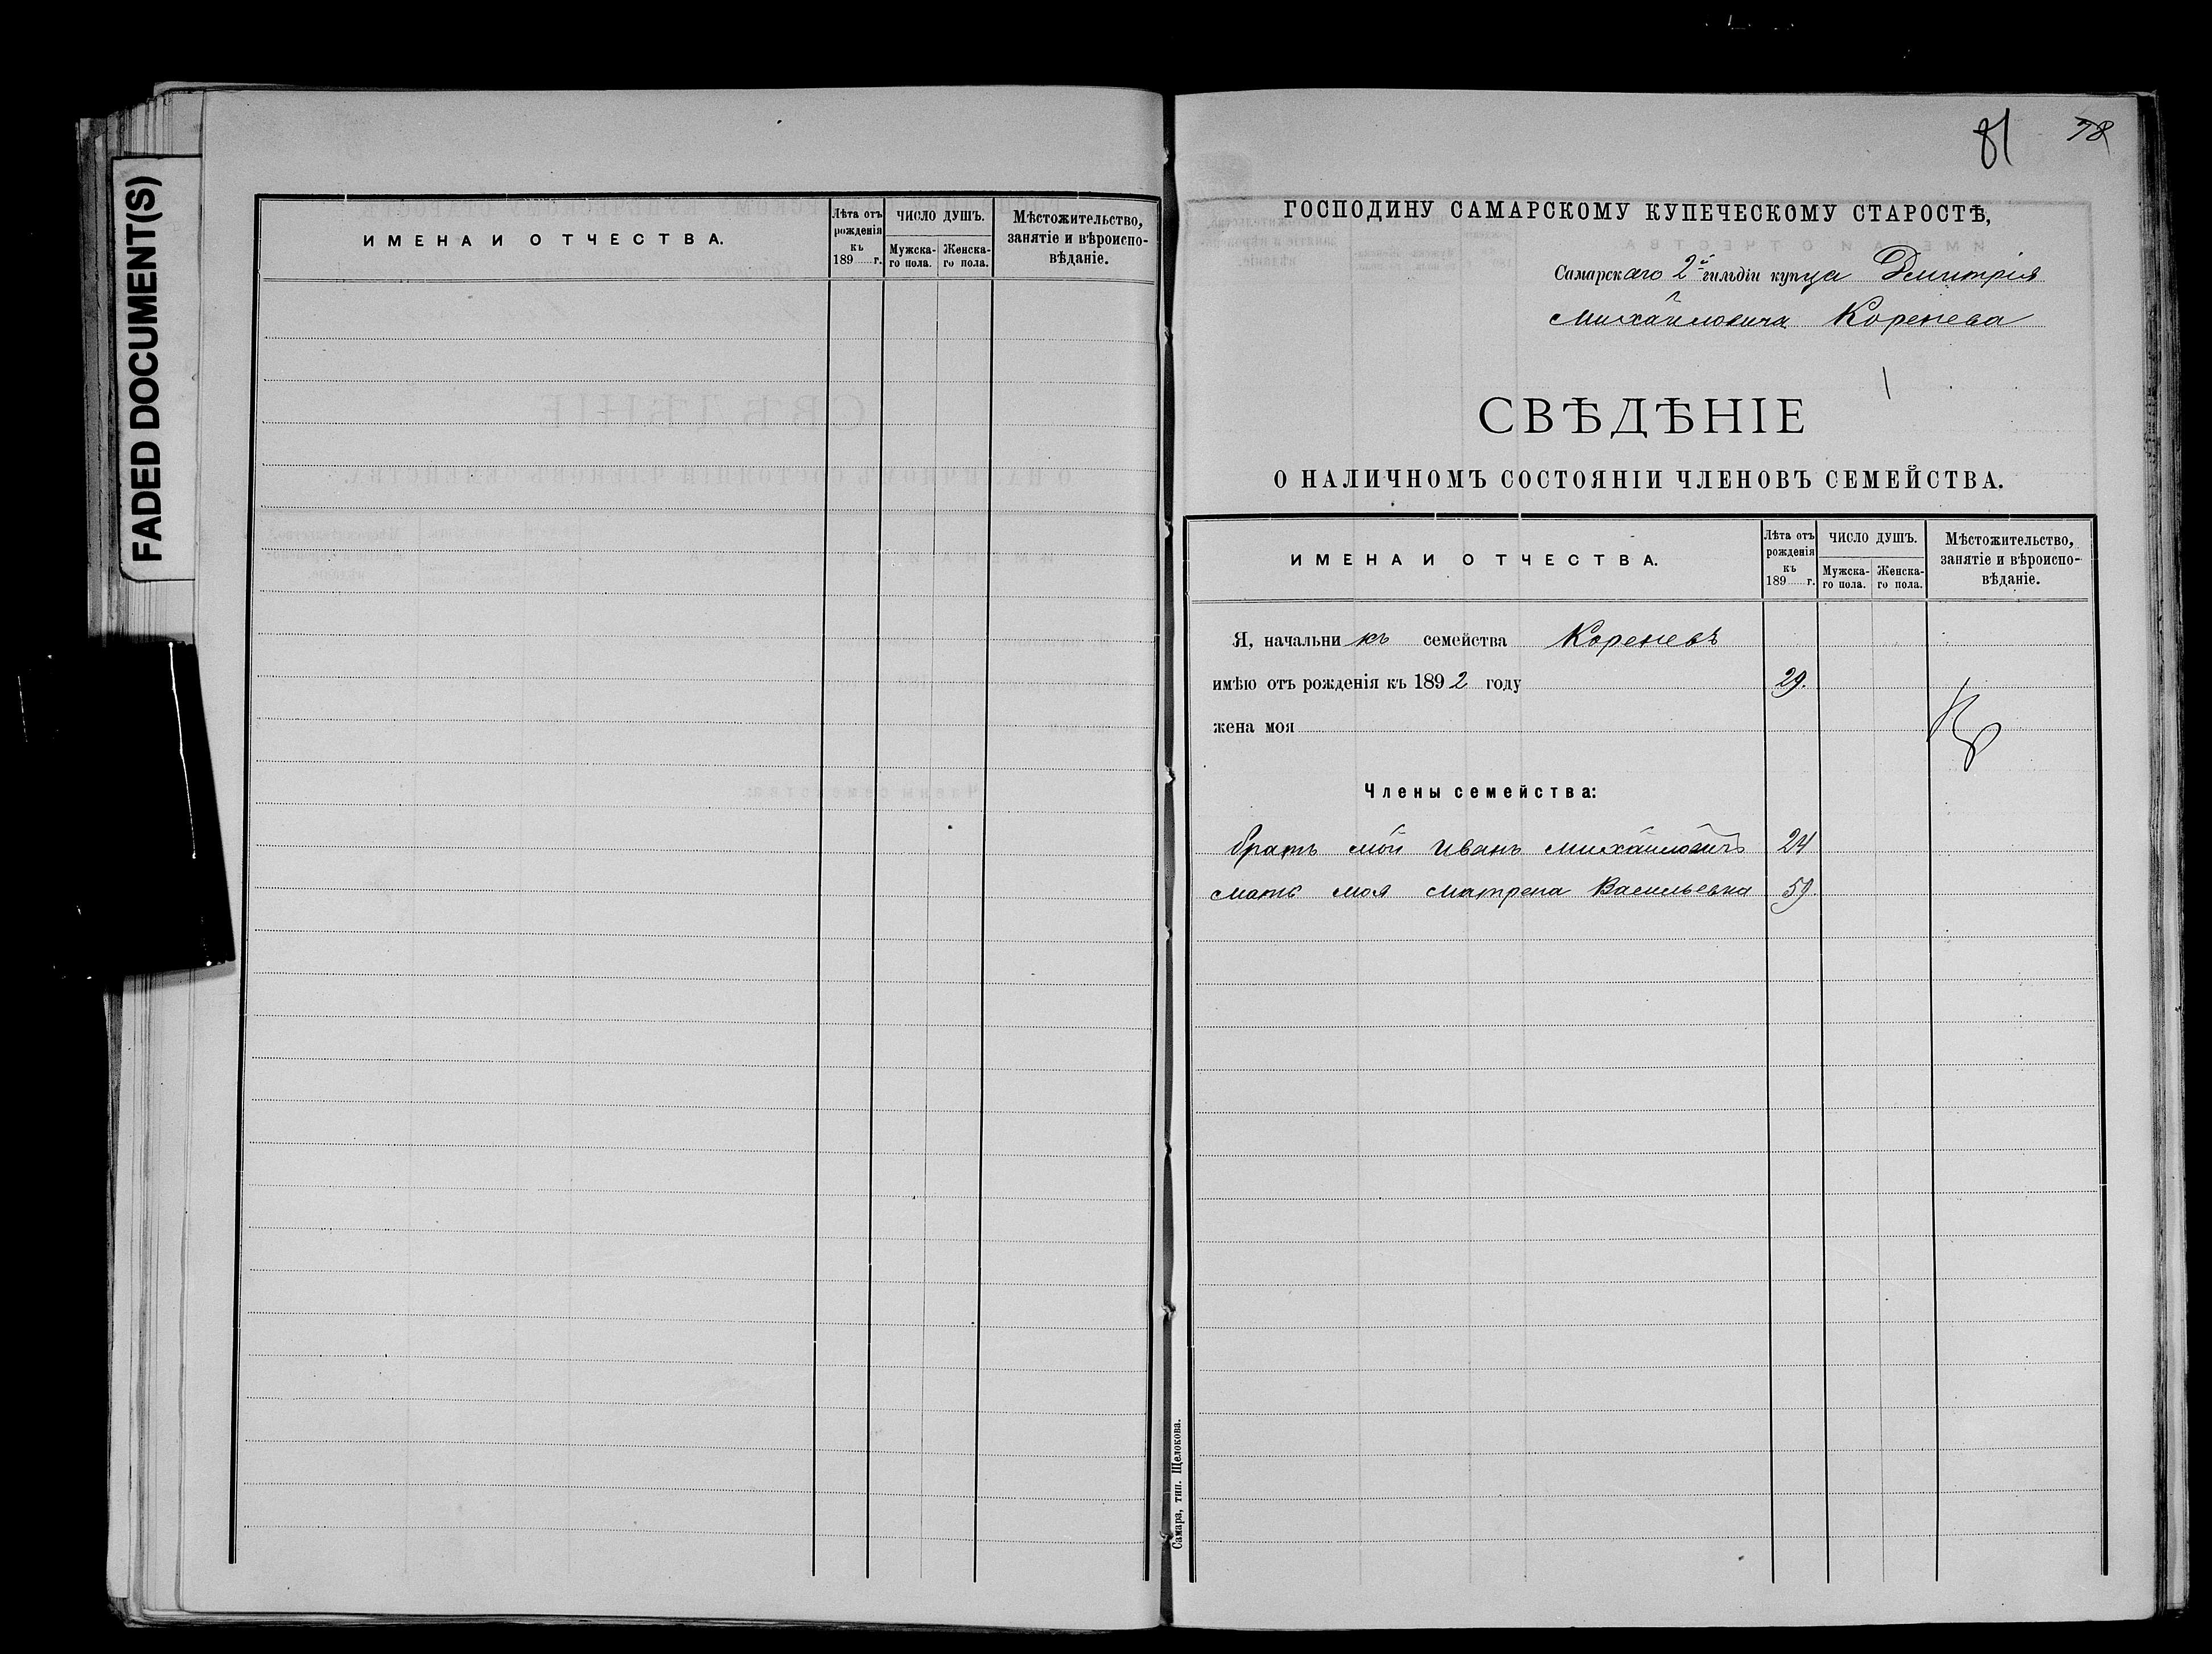 FADED DOCUMENT(S)
ИМЕНА И ОТЧЕСТВА.
Лѣта отъ рожденія къ 189 г.
ЧИСЛО ДУШЪ.
Мужска-го пола.
Женска-го пола.
Мѣстожительство, занятіе и вѣроиспо-вѣданіе.
81 78
ГОСПОДИНУ САМАРСКОМУ КУПЕЧЕСКОМУ СТАРОСТѢ,
Самарскаго 2й гильдіи купца Дмитрія
Михайловича Коренева
СВѢДѢНІЕ
О НАЛИЧНОМЪ СОСТОЯНІИ ЧЛЕНОВЪ СЕМЕЙСТВА.
ИМЕНА И ОТЧЕСТВА.
Лѣта отъ рожденія къ 189 г.
ЧИСЛО ДУШЪ.
Мужска-го пола.
Женска-го пола.
Мѣстожительство, занятіе и вѣроиспо-вѣданіе.
Я, начальникъ семейства Кореневъ
имѣю отъ рожденія къ 1892 году 29.
жена моя
Члены семейства:
братъ мой Иванъ Михайловичъ 24
мать моя Матрена Васильевна 59.
Самара, тип. Щелокова.